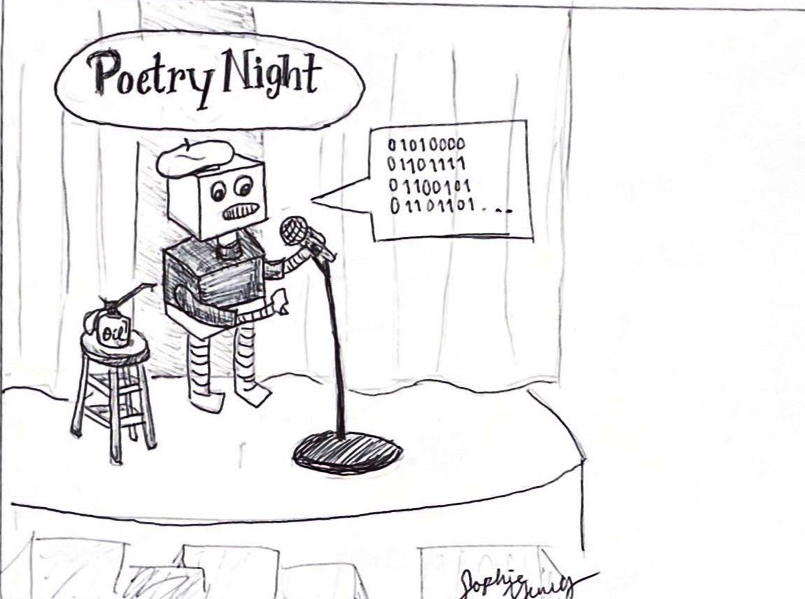 Poetry Night
01010000
01101111
01100101
01101101...
oil
Sophie